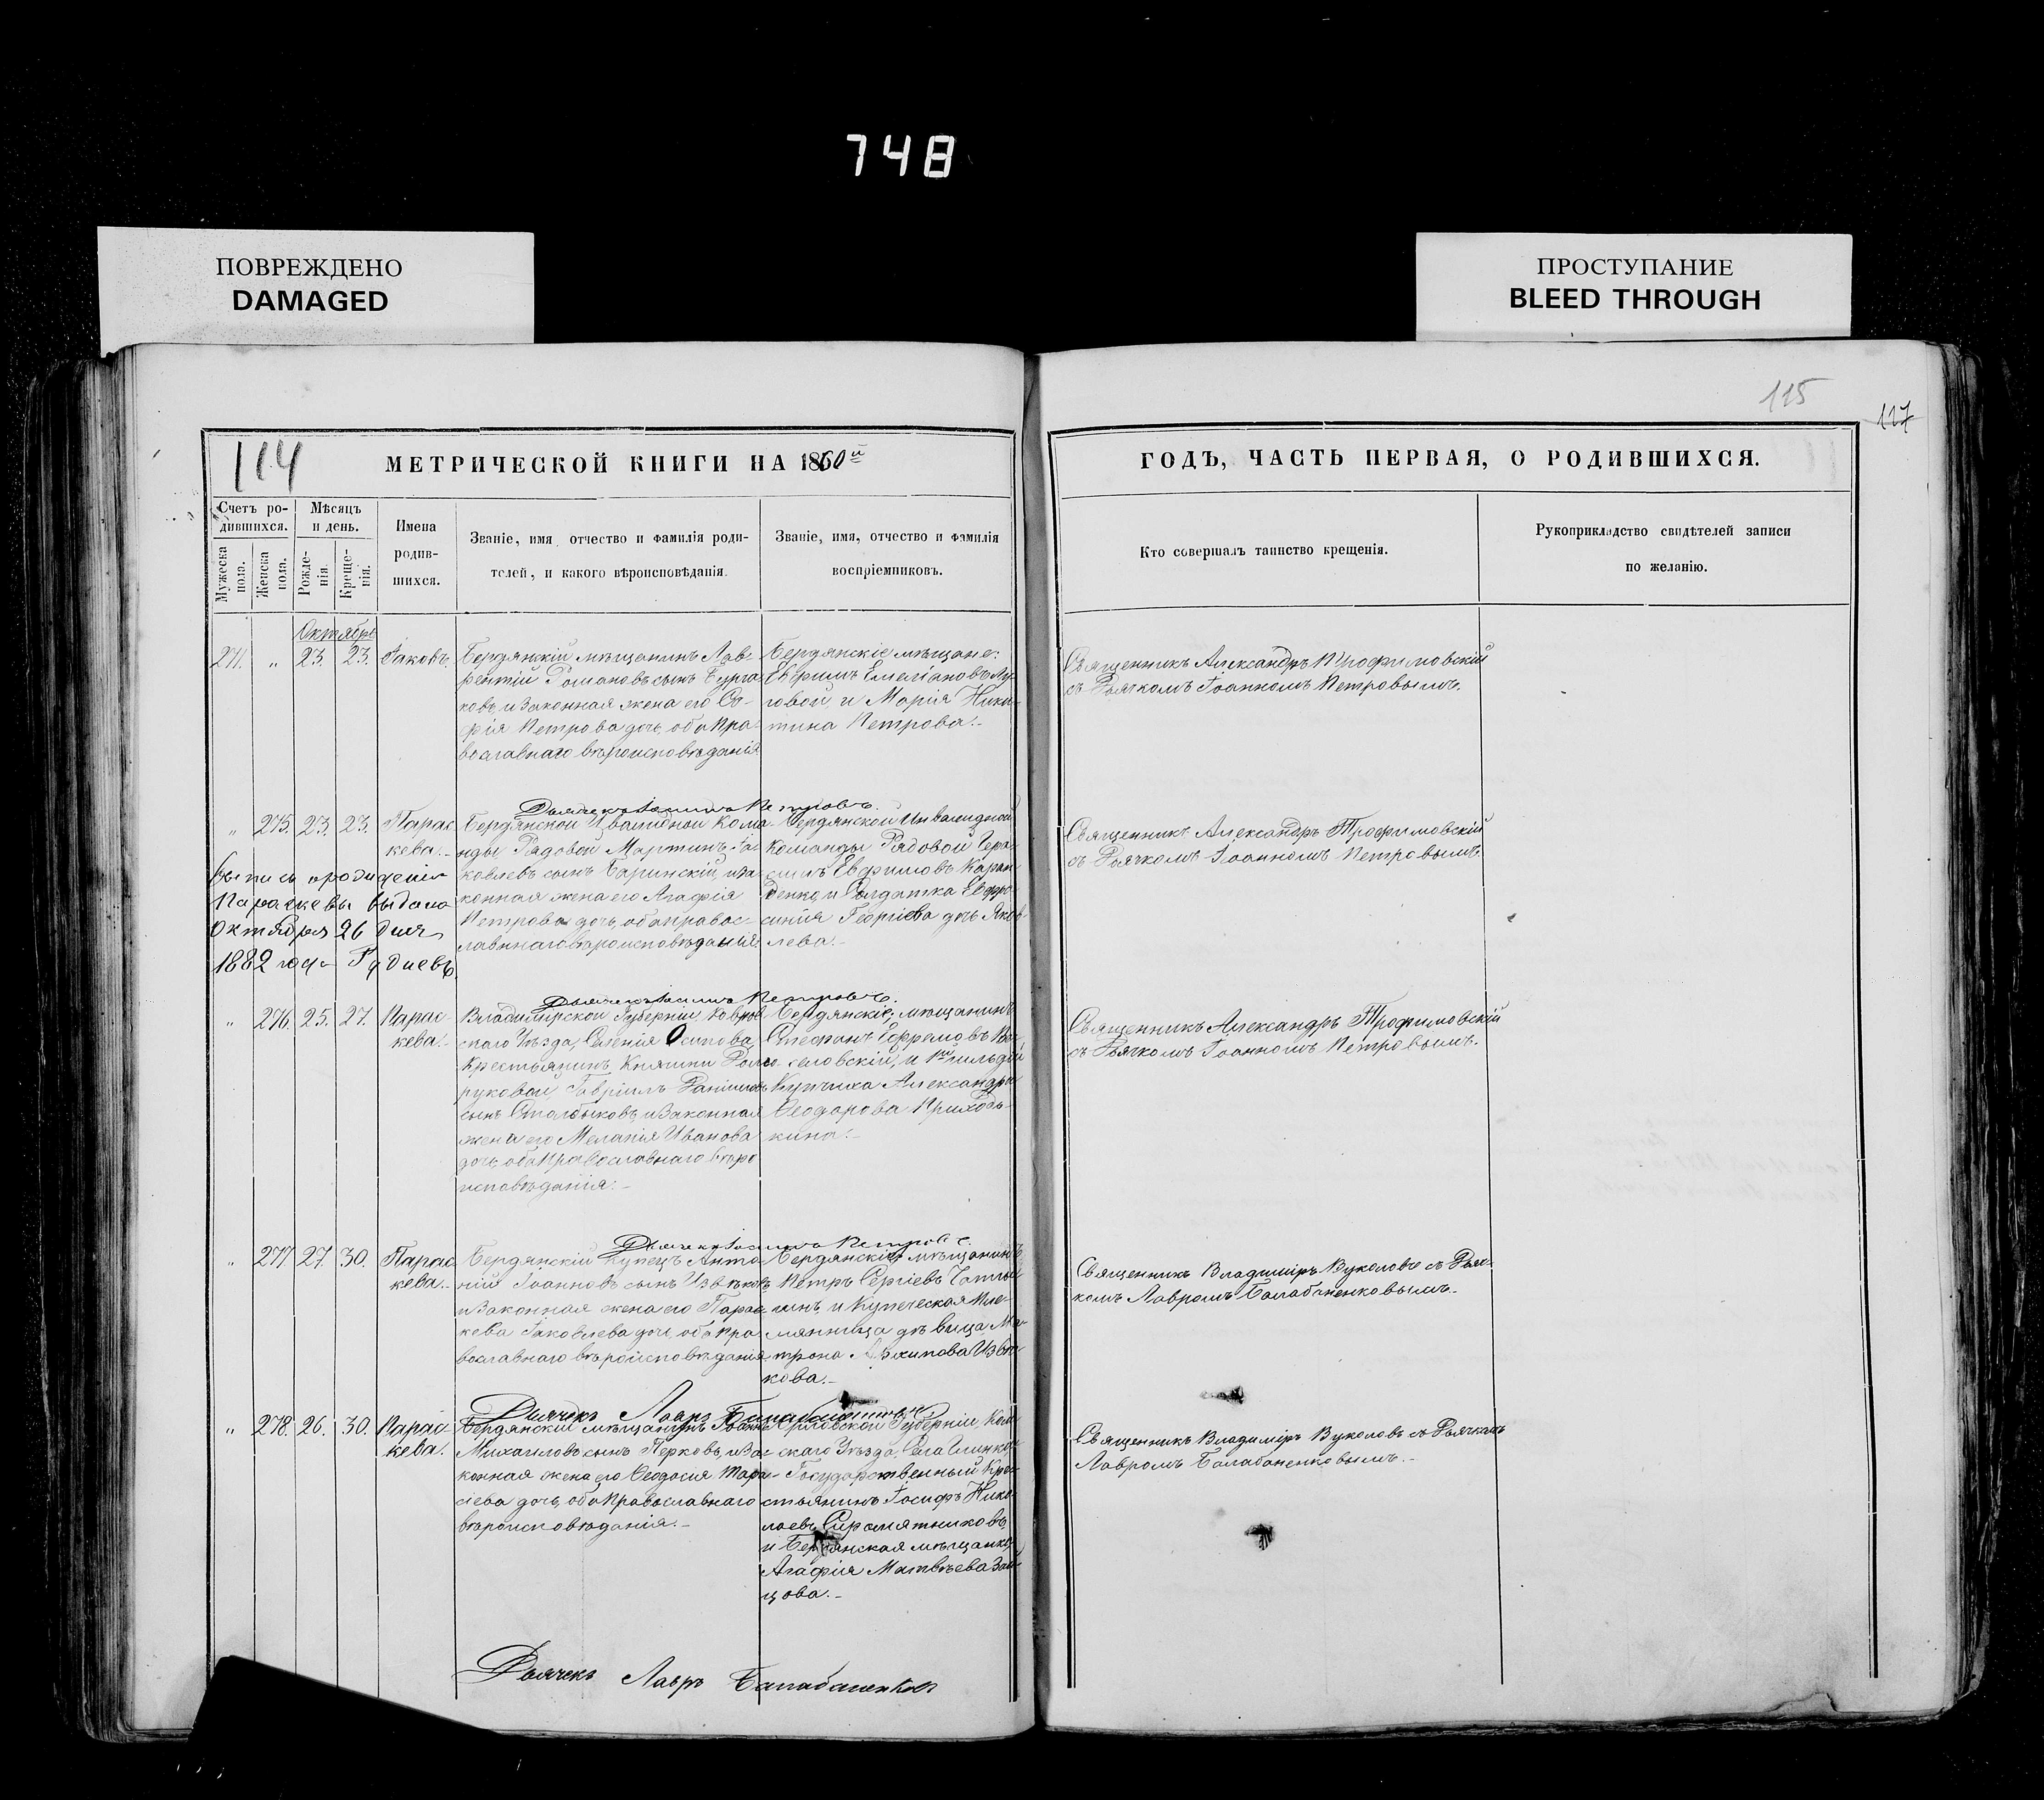 748
ПОВРЕЖДЕНО
DAMAGED
ПРОСТУПАНИЕ
BLEED THROUGH
115
117
114
МЕТРИЧЕСКОЙ КНИГИ НА 1860й
ГОДЪ, ЧАСТЬ ПЕРВАЯ, О РОДИВШИХСЯ.
Счетъ ро-
дившихся.
Мужеска
пола.
Женска
пола.
Мѣсяцъ
и день.
Рожде-
нія.
Креще-
нія.
Имена
родив-
шихся.
Званіе, имя отчество и фамилія роди-
телей, и какого вѣроисповѣданія.
Званіе, имя, отчество и фамилія
воспріемниковъ.
Кто совершалъ таинство крещенія.
Рукоприкладство свидѣтелей записи
по желанію.
Октябрь
271. „ 23. 23. Іаковъ.
Бердянскій мѣщанинъ Лав-
рентій Романовъ сынъ Бурга-
ковъ, и законная жена его Со-
фія Петрова дочь, оба пра-
вославнаго вѣроисповѣданія
Бердянскіе мѣщане:
Емеліановъ Лу-
говой, и Марія Ники-
тина Петрова.-
Священникъ Александръ Трофимовскій
съ Дьячкомъ Іоанномъ Петровымъ.
Дьячекъ Іоаннъ Петровъ.
„ 275. 23. 23. Парас-
кева.-
Бердянской Инвалидной Кома-
нды Рядовой Мартинъ Іа-
ковлевъ сынъ Баринскій, и за-
конная жена его Агафія
Петрова дочь, оба правос-
лавнаго вѣроисповѣданія
Бердянской Инвалидной
Команды Рядовой Гера-
симъ Евфимовъ
денко, и Солдатка Евфро-
синія Георгіева дочь Яков-
лева.-
Священникъ Александръ Трофимовскій
съ Дьячкомъ Іоанномъ Петровымъ.
о рожденіи
Параскевы выдана
Октября 26 дня
1882 года
Дьячекъ Іоаннъ Петровъ.
„ 276. 25. 27. Парас-
кева.-
Владимірской Губерніи, Ковров-
скаго Уѣзда, Селенія Осипова,
Крестьянинъ Княгини Долго-
руковой, Гавріилъ Даніиловъ
сынъ Столбиковъ, и законная
жена его Меланія Иванова
дочь, оба православнаго вѣро-
исповѣданія.-
Бердянскіе, мѣщанинъ
Стефанъ Ефремовъ
и гильдіи
Купчиха Александра
Ѳеодорова Приходь-
кина.-
Священникъ Александръ Трофимовскій
съ Дьячкомъ Іоанномъ Петровымъ.
Дьячекъ Іоаннъ Петровъ.
„ 277. 27. 30. Парас-
кева.-
Бердянскій Купецъ Анто-
ній Іоанновъ сынъ Извѣковъ,
и законная жена его Парас-
кева Іаковлева дочь, оба пра-
вославнаго вѣроисповѣданія
Бердянскіе, мѣщанинъ
Петръ Сергіевъ
и Купеческая пле-
мянница дѣвица Ма-
трона Архипова Извѣ-
кова.-
Священникъ Владиміръ Вуколовъ съ Дьяч-
комъ Лавромъ Балабаненковымъ.
Дьячекъ Лавръ Балабаненковъ
„ 278. 26. 30. Парас-
кева.
Бердянскій мѣщанинъ Іоаннъ
Михаиловъ сынъ Перковъ, и за-
конная жена его Ѳеодосія Тара-
сіева дочь, оба православнаго
вѣроисповѣданія.-
Орловской Губерніи,
скаго Уѣзда, Села
Государственный Кре-
стьянинъ Іосифъ Нико-
лаевъ Сыромятниковъ,
и Бердянская мѣщанка
Агафія Матвѣева Зай-
цова.-
Священникъ Владиміръ Вуколовъ съ Дьячкомъ
Лавромъ Балабаненковымъ.-
Дьячекъ Лавръ Балабаненковъ